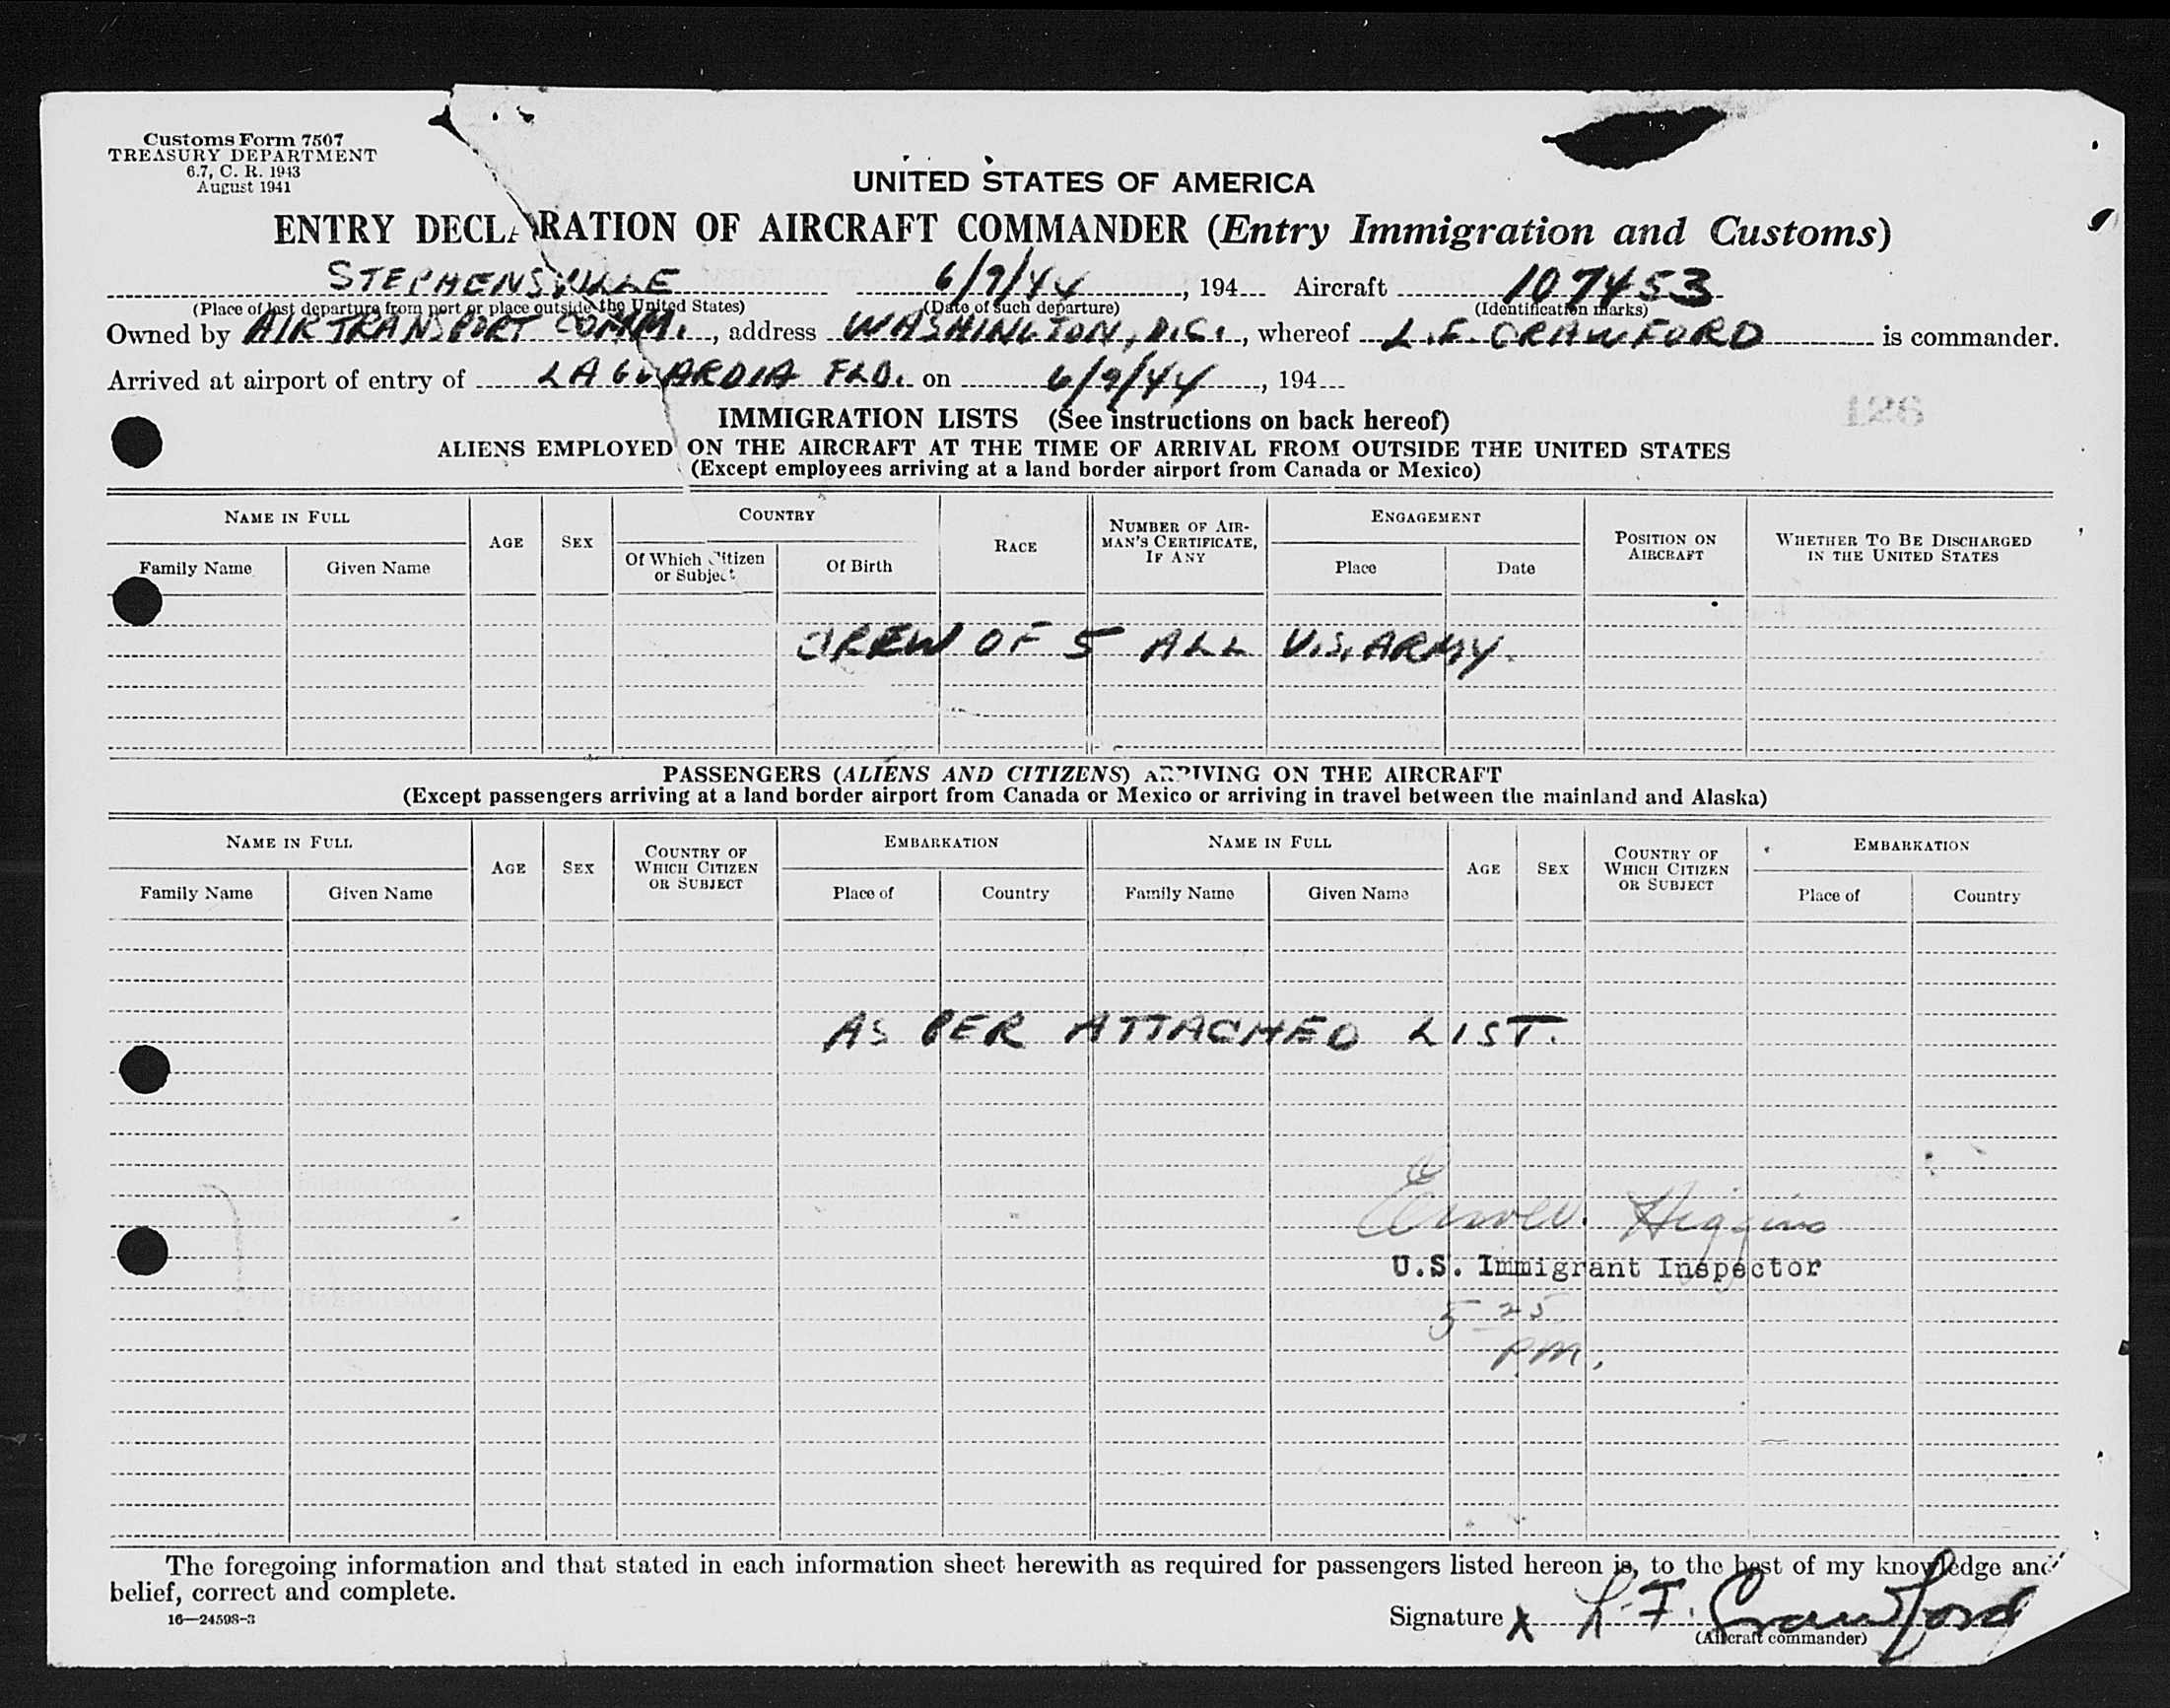 Customs Form 7507
TREASURY DEPARTMENT
6.7, C. R. 1943
August 1941
UNITED STATES OF AMERICA
ENTRY DECLARATION OF AIRCRAFT COMMANDER (Entry Immigration and Customs)
STEPHENSVILLE 6/9/44, 194 Aircraft 107453
(Place of last departure from port or place outside the United States) (Date of such departure) (Identification marks)
Owned by AIR TRANSPORT COMM., address WASHINGTON, D.C., whereof L.F. CRAWFORD is commander.
Arrived at airport of entry of LAGUARDIA FLD. on 6/9/44, 194
126
IMMIGRATION LISTS (See instructions on back hereof)
ALIENS EMPLOYED ON THE AIRCRAFT AT THE TIME OF ARRIVAL FROM OUTSIDE THE UNITED STATES
(Except employees arriving at a land border airport from Canada or Mexico)
NAME IN FULL AGE SEX COUNTRY RACE NUMBER OF AIRMAN'S CERTIFICATE, IF ANY ENGAGEMENT POSITION ON AIRCRAFT WHETHER TO BE DISCHARGED IN THE UNITED STATES
Family Name Given Name Of Which Citizen or Subject Of Birth Place Date
CREW OF 5 ALL U.S. ARMY.
PASSENGERS (ALIENS AND CITIZENS) ARRIVING ON THE AIRCRAFT
(Except passengers arriving at a land border airport from Canada or Mexico or arriving in travel between the mainland and Alaska)
NAME IN FULL AGE SEX COUNTRY OF WHICH CITIZEN OR SUBJECT EMBARKATION NAME IN FULL AGE SEX COUNTRY OF WHICH CITIZEN OR SUBJECT EMBARKATION
Family Name Given Name Place of Country Family Name Given Name Place of Country
AS PER ATTACHED LIST.
Higgins
U.S. Immigrant Inspector
5 25
PM.
The foregoing information and that stated in each information sheet herewith as required for passengers listed hereon is, to the best of my knowledge and
belief, correct and complete.
16—24598-3
Signature X L. F. Crawford
(Aircraft commander)